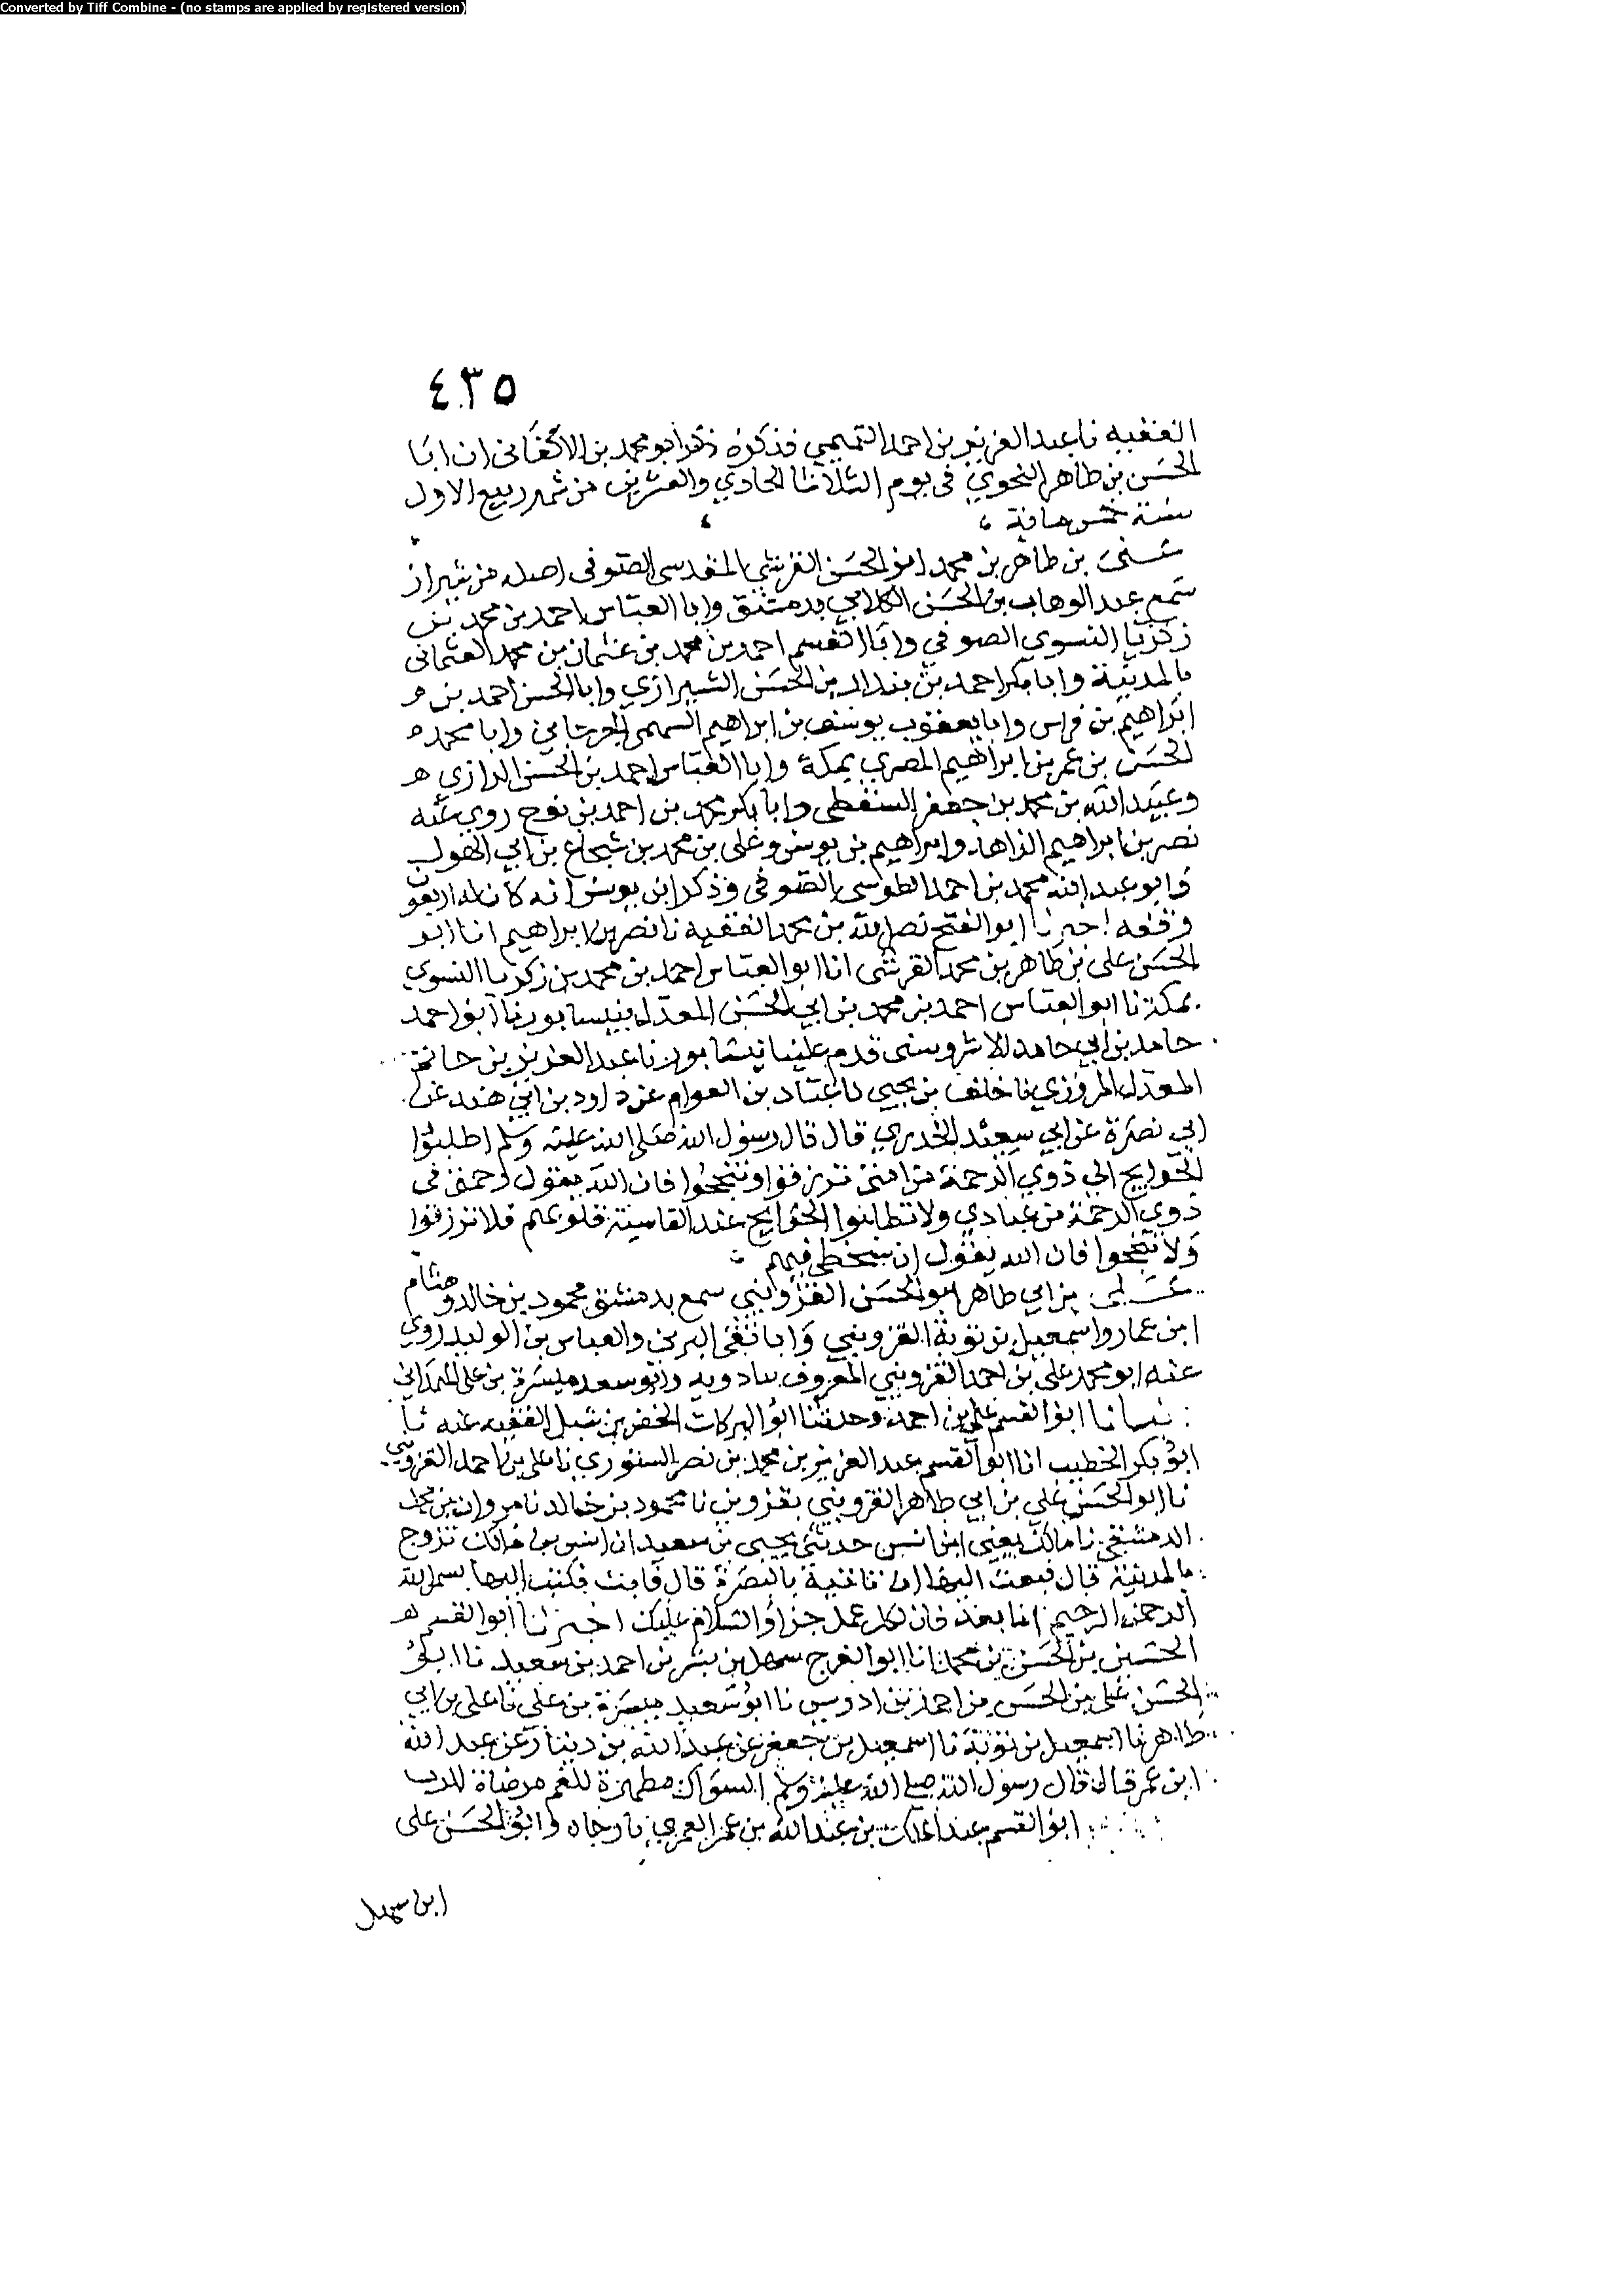 Converted by Tiff Combine - (no stamps are applied by registered version)
٤٣٥
الفقيه نا عبد العزيز بن احمد التميمي فذكره ذكر ابو محمد بن الاكفاني ان ابا
الحسن بن طاهر النحوي في يوم الثلاثا الحادي والعشرين من شهر ربيع الاول
سنة خمس مائة
علي بن طاهر بن محمد ابو الحسن القرشي المقدسي الصوفي اصله من شيراز
سمع عبد الوهاب بن الحسن الكلابي بدمشق وابا العباس احمد بن محمد بن
زكريا النسوي الصوفي وابا القسم احمد بن محمد بن عثمان بن محمد العثماني
بالمدينة وابا بكر احمد بن بندار بن الحسن الشيرازي وابا الحسن احمد بن
ابراهيم بن فراس وابا يعقوب يوسف بن ابراهيم السهمي الجرجاني وابا محمد
الحسن بن عمر بن ابراهيم المصري بمكة وابا العباس احمد بن الحسن الرازي
وعبيد الله بن محمد بن جعفر السقطي وابا بكر محمد بن احمد بن نوح روى عنه
نصر بن ابراهيم الزاهد وابراهيم بن يونس وعلي بن محمد بن شجاع بن ابي الهول
وابو عبد الله محمد بن احمد الطوسي الصوفي وذكر ابن يونس انه كان له اربعون
وقفه اخبرنا ابو الفتح نصر الله بن محمد الفقيه نا نصر بن ابراهيم انا ابو
الحسن علي بن طاهر بن محمد القرشي انا ابو العباس احمد بن محمد بن زكريا النسوي
بمكة نا ابو العباس احمد بن محمد بن ابي الحسن المعدل بنيسابور نا ابو احمد
حامد بن ابي حامد الاشروسني قدم علينا نيسابور نا عبد العزيز بن حاتم
المعدل المروزي نا خلف بن يحيى نا عباد بن العوام عن داود بن ابي هند عن
ابي نضرة عن ابي سعيد الخدري قال قال رسول الله صلى الله عليه وسلم اطلبوا
الحوايج الى ذوي الرحمة من امتي ترزقوا وتنجحوا فان الله يقول رحمتي في
ذوي الرحمة من عبادي ولا تطلبوا الحوايج عند القاسية قلوبهم فلا ترزقوا
ولا تنجحوا فان الله يقول ان سخطي فيهم
علي بن ابي طاهر ابو الحسن القزويني سمع بدمشق محمود بن خالد وهشام
ابن عمار واسمعيل بن توبة القزويني وابا تقي اليزني والعباس بن الوليد روى
عنه ابو محمد علي بن احمد القزويني المعروف ببادويه وابو سعد ميسرة بن علي الهمداني
انبانا ابو القسم علي بن احمد وحدثنا ابو البركات الخضر بن شبل الفقيه عنه نا
ابو بكر الخطيب انا ابو القسم عبد العزيز بن محمد بن نصر الستوري نا علي بن احمد القزويني
نا ابو الحسن علي بن ابي طاهر القزويني بقزوين نا محمود بن خالد نا مروان بن محمد
الدمشقي نا مالك يعني ابن انس حدثني يحيى بن سعيد ان انس بن مالك تزوج
بالمدينة قال فبعث اليها ان تاتيه بالبصرة قال فابت فكتب اليها بسم الله
الرحمن الرحيم اما بعد فان لكل عمل جزاء والسلام عليك اخبرنا ابو القسم
الحسين بن الحسن بن محمد انا ابو الفرج سهل بن بشر بن احمد بن سعيد نا ابو
الحسن علي بن الحسن بن احمد بن ادريس نا ابو سعيد ميسرة بن علي نا علي بن ابي
طاهر نا اسمعيل بن توبة نا اسمعيل بن جعفر عن عبد الله بن دينار عن عبد الله
ابن عمر قال قال رسول الله صلى الله عليه وسلم السواك مطهرة للفم مرضاة للرب
ابو القسم عبد الملك بن عبد الله بن عمر العمري نا رجاء وابو الحسن علي
ابن سهل